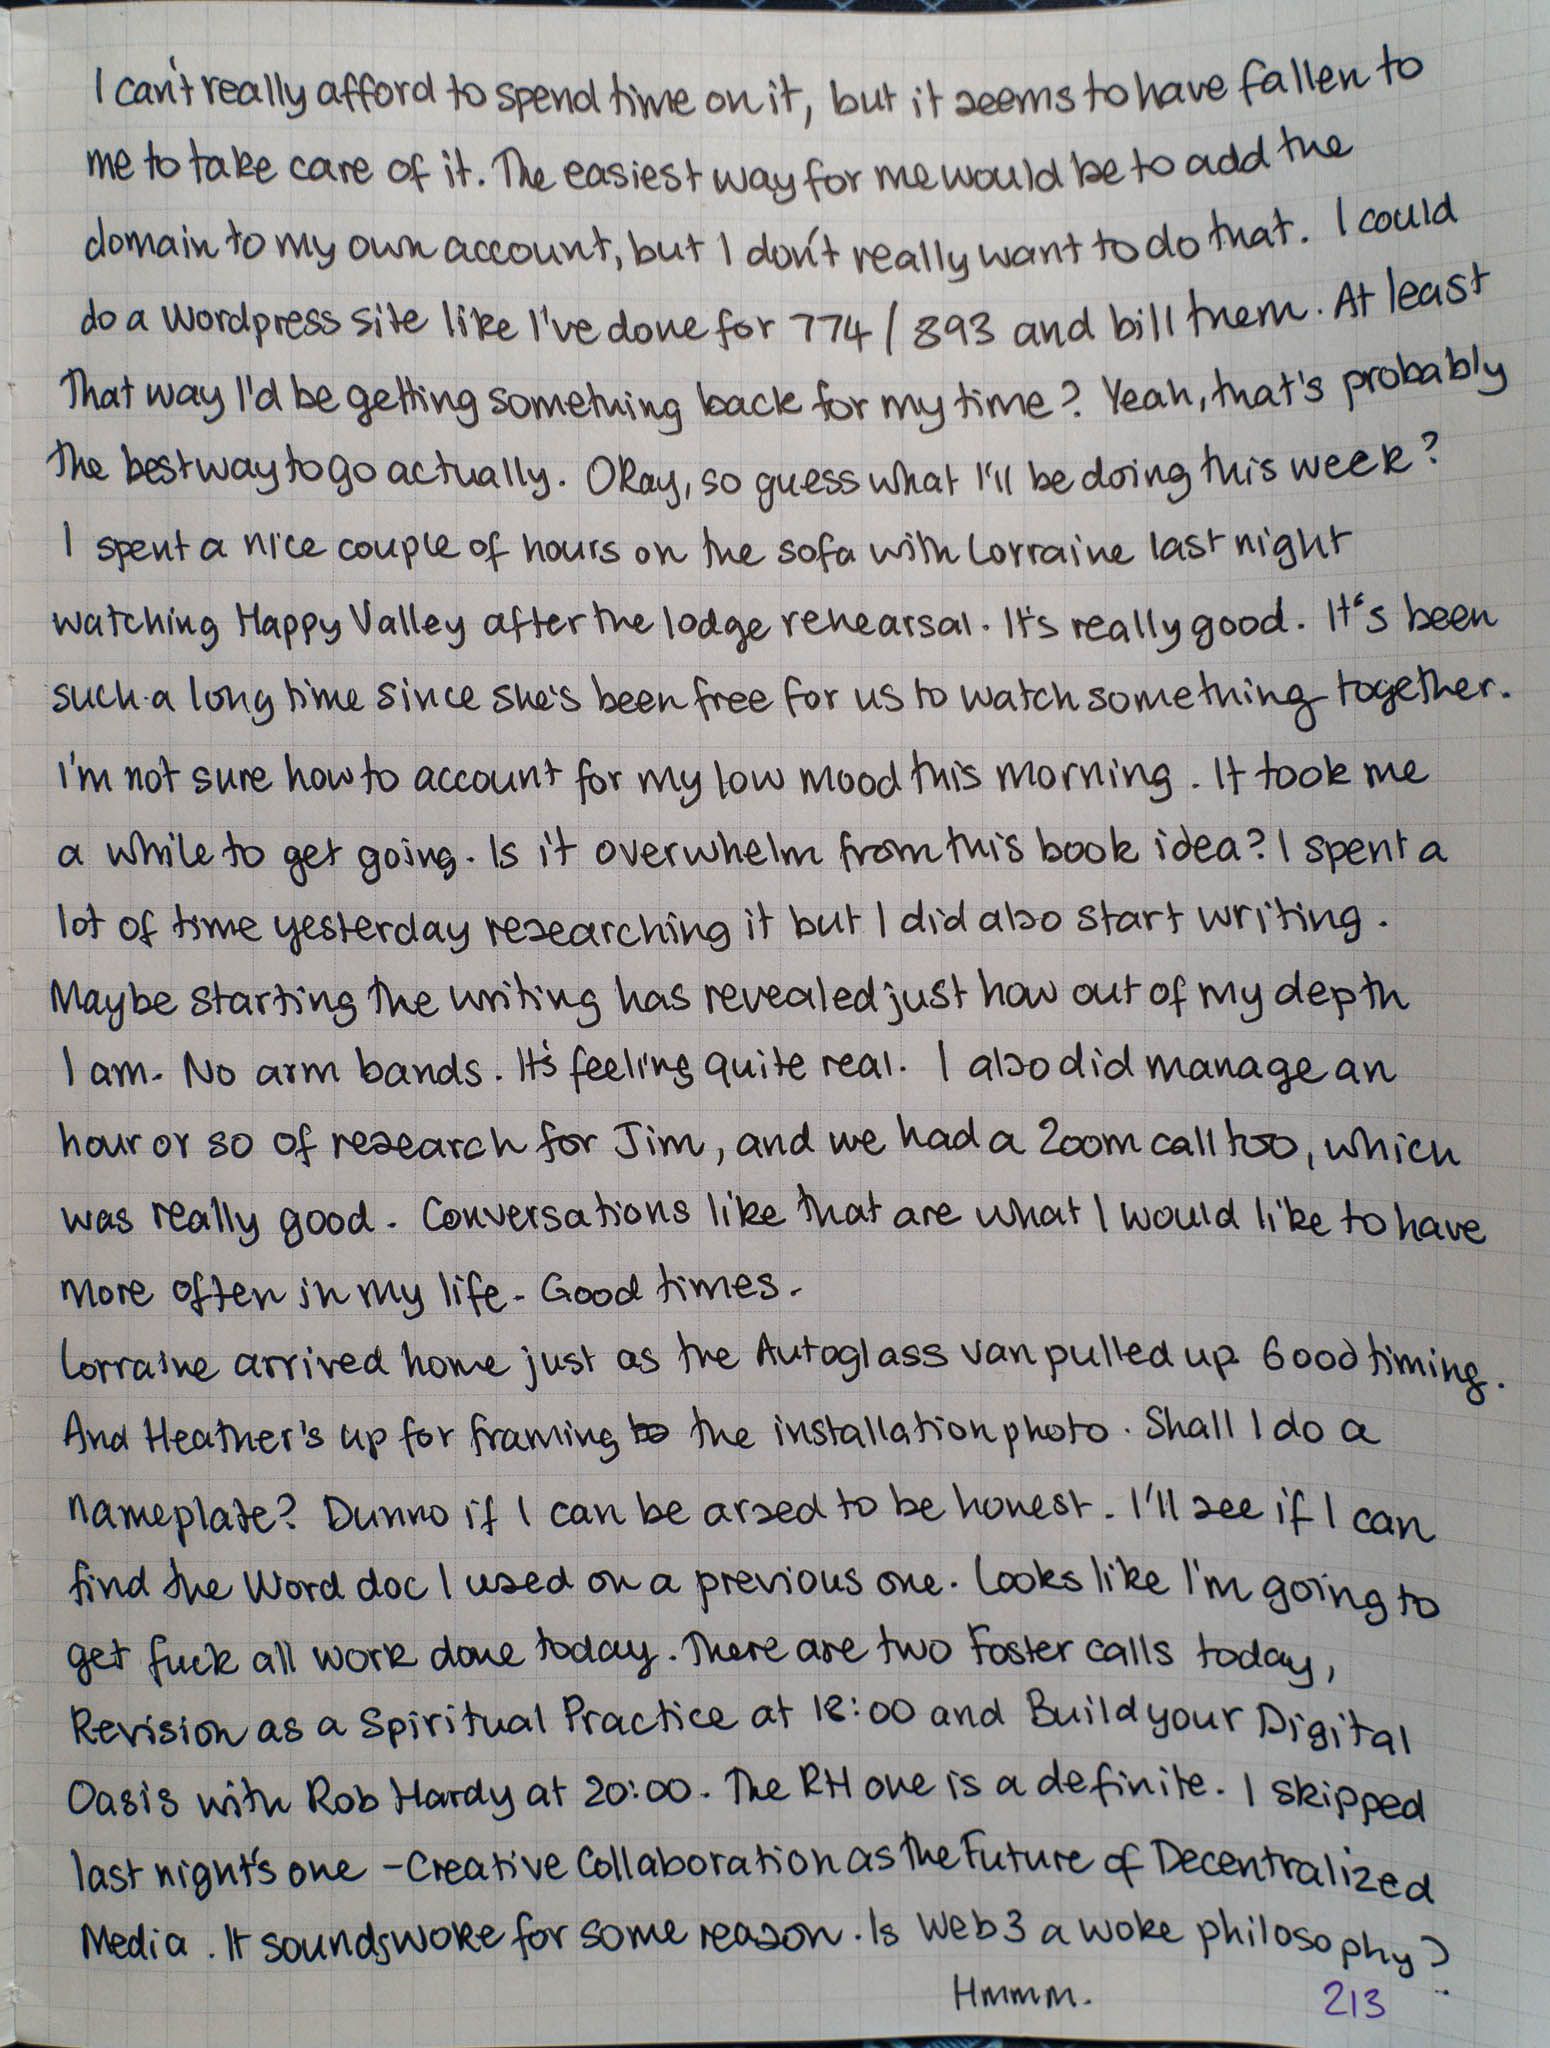 I can't really afford to spend time on it, but it seems to have fallen to
me to take care of it. The easiest way for me would be to add the
domain to my own account, but I don't really want to do that. I could
do a Wordpress site like I've done for 774/893 and bill them. At least
that way I'd be getting something back for my time? Yeah, that's probably
the best way to go actually. Okay, so guess what I'll be doing this week?
I spent a nice couple of hours on the sofa with Lorraine last night
watching Happy Valley after the lodge rehearsal. It's really good. It's been
such a long time since she's been free for us to watch something together.
I'm not sure how to account for my low mood this morning. It took me
a while to get going. Is it overwhelm from this book idea? I spent a
lot of time yesterday researching it but I did also start writing.
Maybe starting the writing has revealed just how out of my depth
I am. No arm bands. It's feeling quite real. I also did manage an
hour or so of research for Jim, and we had a Zoom call too, which
was really good. Conversations like that are what I would like to have
more often in my life. Good times.
Lorraine arrived home just as the Autoglass van pulled up. Good timing.
And Heather's up for framing the installation photo. Shall I do a
nameplate? Dunno if I can be arsed to be honest. I'll see if I can
find the Word doc I used on a previous one. Looks like I'm going to
get fuck all work done today. There are two Foster calls today,
Revision as a Spiritual Practice at 18:00 and Build your Digital
Oasis with Rob Hardy at 20:00. The RH one is a definite. I skipped
last night's one - Creative Collaboration as the Future of Decentralized
Media. It sounds woke for some reason. Is Web3 a woke philosophy?
Hmmm.
213